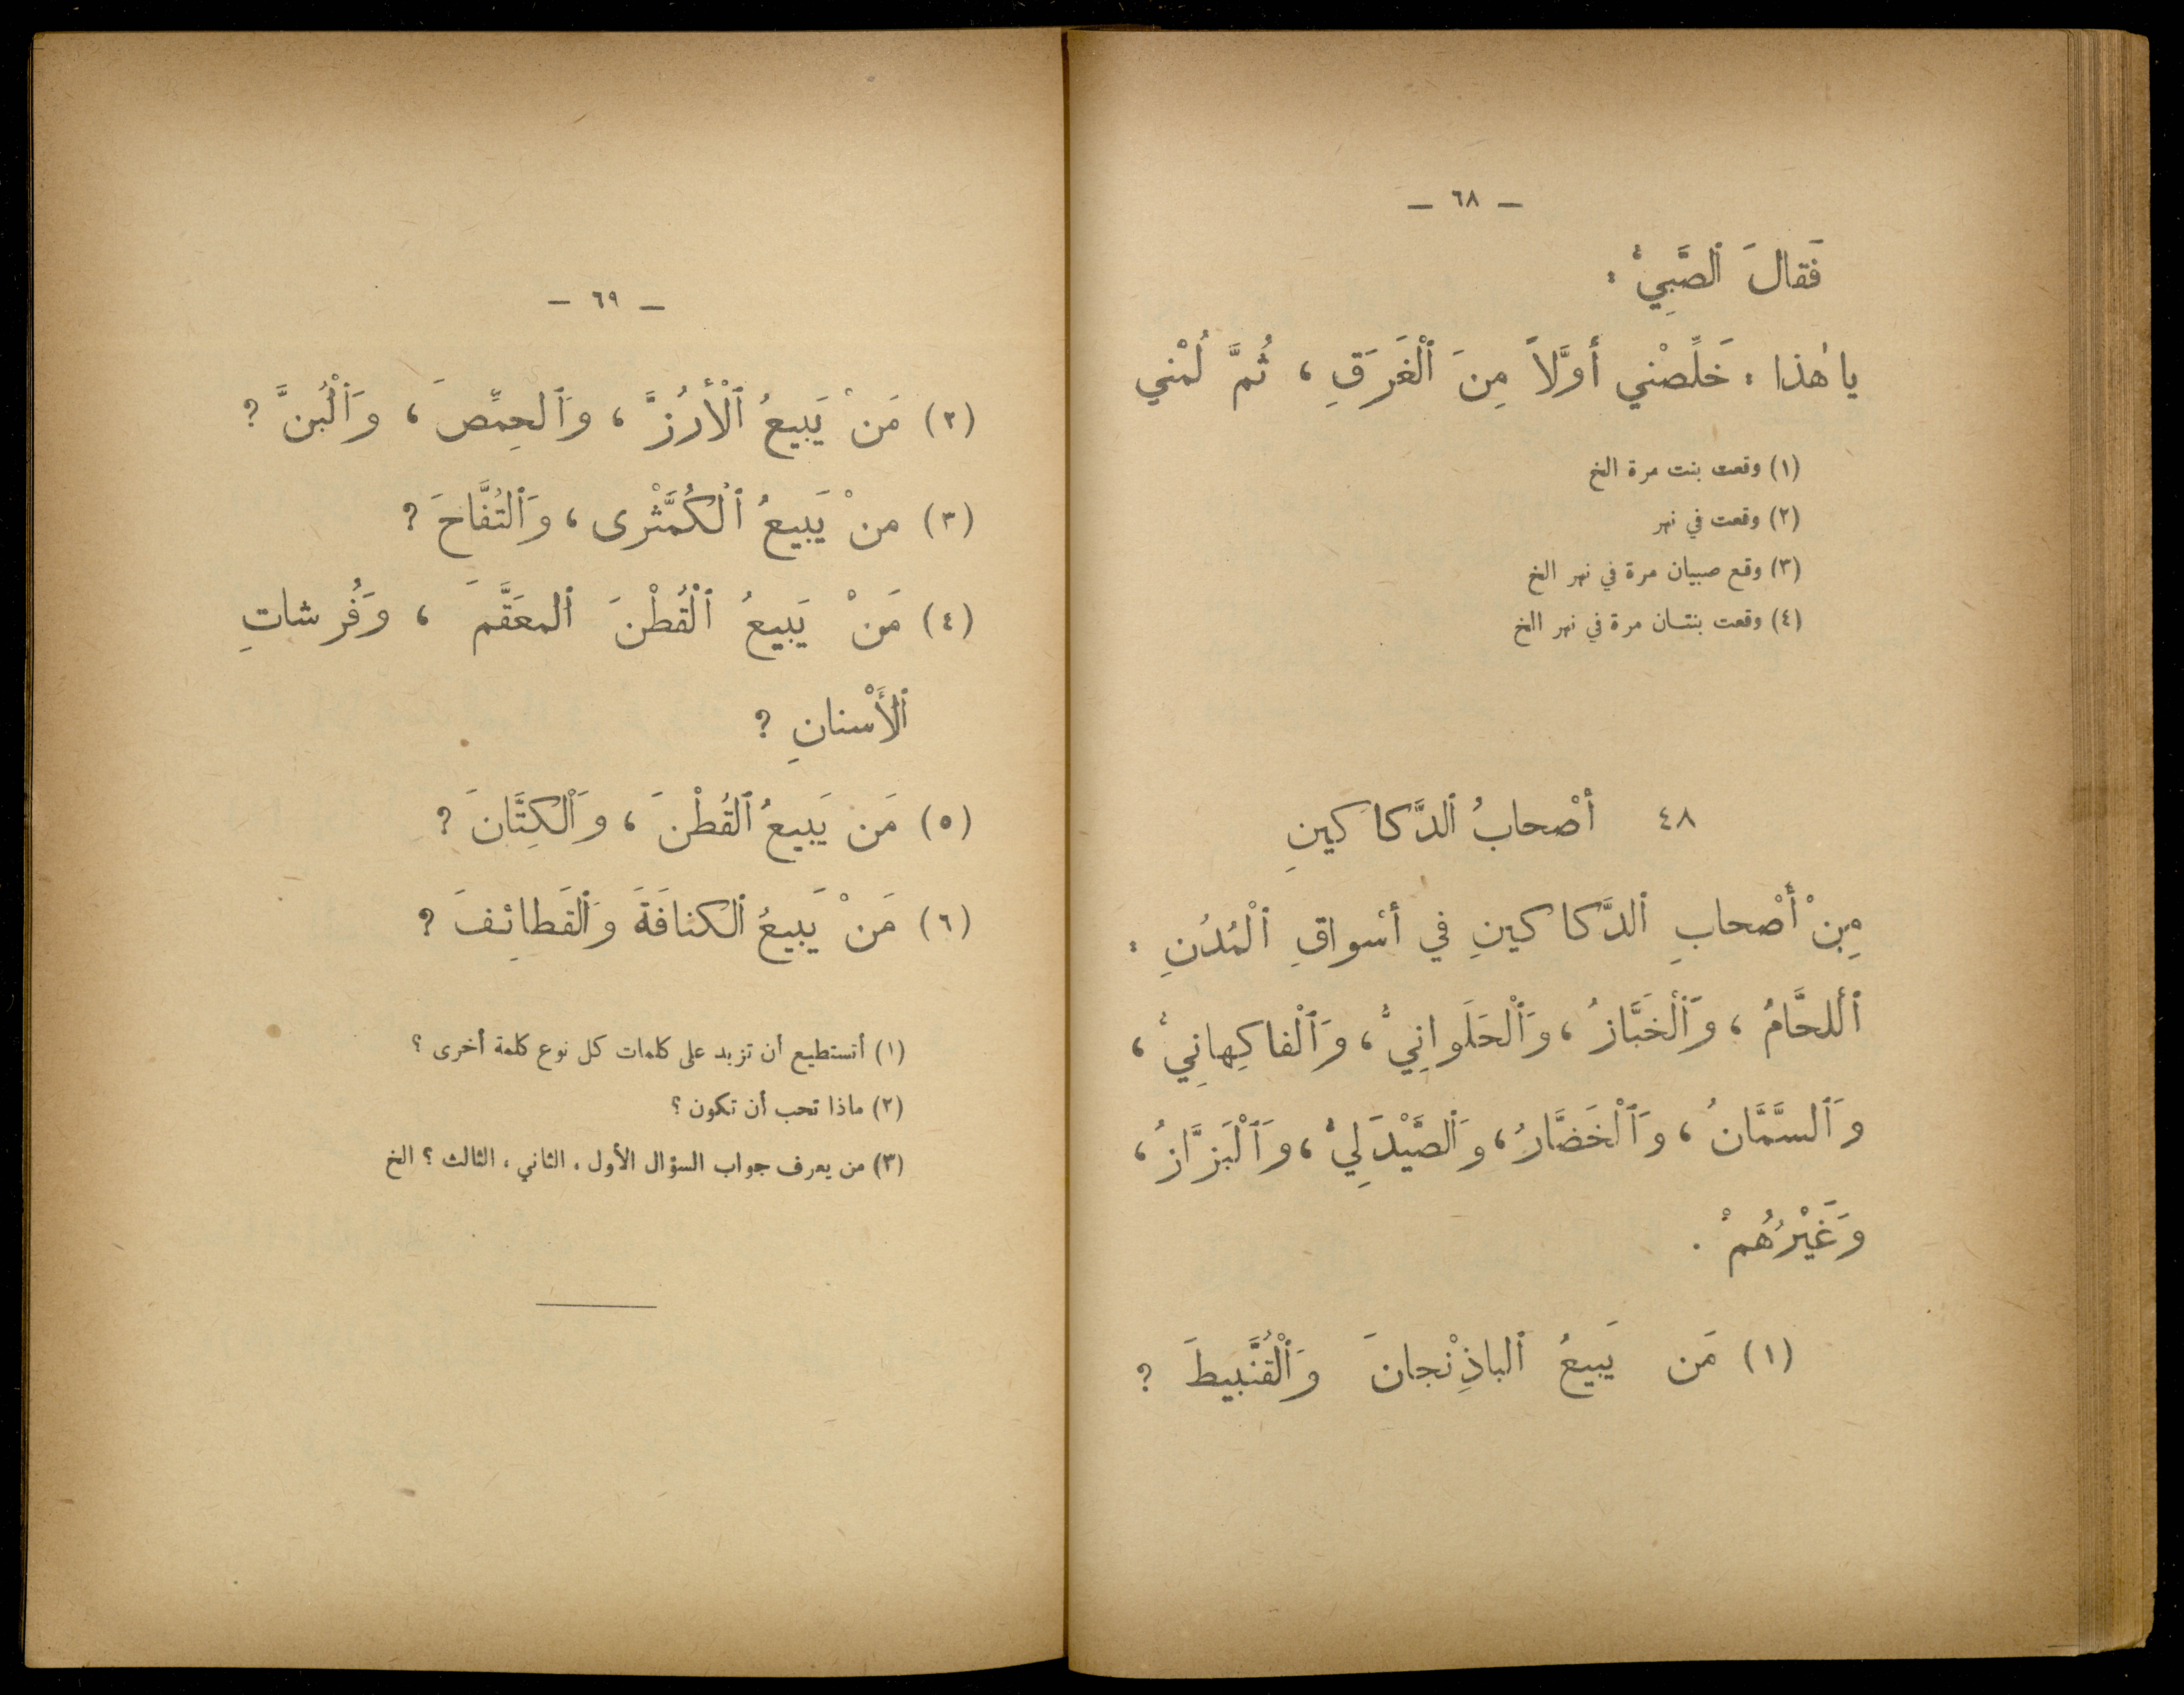 — ٦٨ —
فَقالَ ٱلصَّبِيُّ :
يا هٰذا : خَلِّصْني أوَّلاً مِنَ ٱلْغَرَقِ ، ثُمَّ لُمْني
(١) وقعت بنت مرة الخ
(٢) وقعت في نهر
(٣) وقع صبيان مرة في نهر الخ
(٤) وقعت بنتان مرة في نهر الخ
٤٨ أصْحابُ ٱلدَّكاكينِ
مِنْ أَصْحابِ ٱلدَّكاكينِ في أسْواقِ ٱلْمُدُنِ :
ٱللحَّامُ ، وَٱلْخَبَّازُ ، وَٱلْحَلَوانِيُّ ، وَٱلْفاكِهانِيُّ ،
وَٱلسَّمَّانُ ، وَٱلْخَضَّارُ ، وَٱلصَّيْدَلِيُّ ، وَٱلْبَزَّازُ ،
وَغَيْرُهُمْ .
(١) مَن يَبيعُ ٱلباذِنْجانَ وَٱلْقُنَّبيطَ ؟
— ٦٩ —
(٢) مَنْ يَبيعُ ٱلْأرُزَّ ، وَٱلحِمِّصَ ، وَٱلْبُنَّ ؟
(٣) منْ يَبيعُ ٱلْكُمَّثْرى ، وَٱلتُفَّاحَ ؟
(٤) مَنْ يَبيعُ ٱلْقُطْنَ ٱلمعَقَّمَ ، وَفُرشاتِ
ٱلأَسْنانِ ؟
(٥) مَن يَبيعُ ٱلقُطْنَ ، وَٱلْكِتَّانَ ؟
(٦) مَنْ يَبيعُ ٱلكنافَةَ وَٱلقَطائِفَ ؟
(١) أتستطيع أن تزيد على كلمات كل نوع كلمة أخرى ؟
(٢) ماذا تحب أن تكون ؟
(٣) من يعرف جواب السؤال الأول ، الثاني ، الثالث ؟ الخ